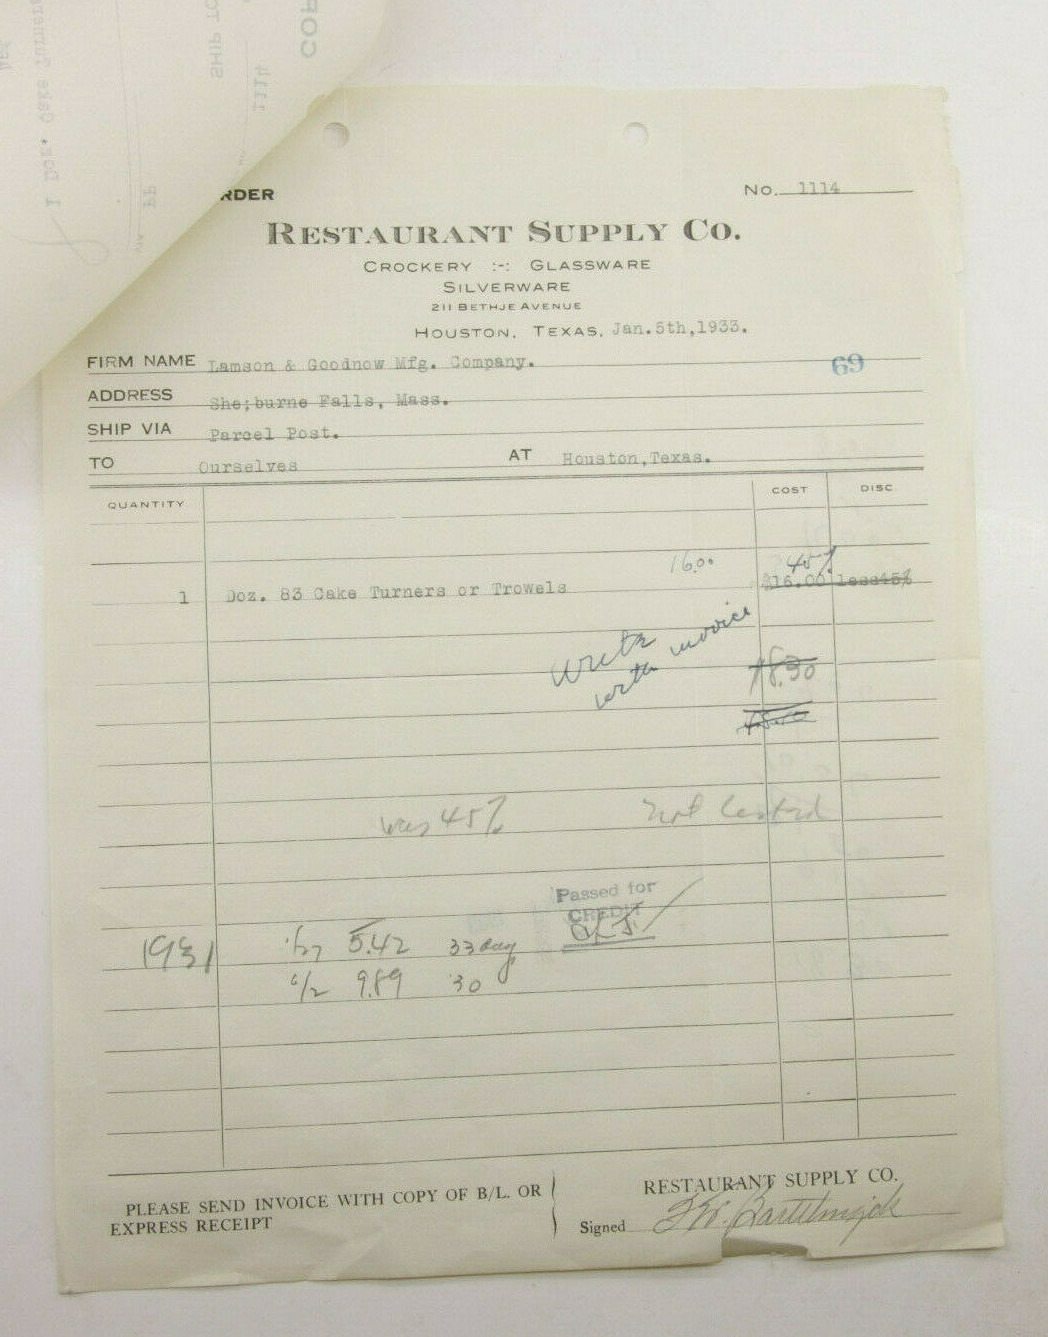 RDER
No. 1114
RESTAURANT SUPPLY CO.
CROCKERY :-: GLASSWARE
SILVERWARE
211 BETHJE AVENUE
HOUSTON, TEXAS, Jan.5th,1933.
FIRM NAME Lamson & Goodnow Mfg. Company.
69
ADDRESS She;burne Falls, Mass.
SHIP VIA Parcel Post.
TO Ourselves AT Houston,Texas.
QUANTITY COST DISC
16.00 45%
1 Doz. 83 Cake Turners or Trowels $16.00 less45%
write
with invoice
8.30
was 45% not
Passed for
CREDIT
1931 5.42 33 day
6/2 9.89 30
PLEASE SEND INVOICE WITH COPY OF B/L. OR
EXPRESS RECEIPT
RESTAURANT SUPPLY CO.
Signed
1 Doz. Cake Turners
SHIP TO
1114
COP